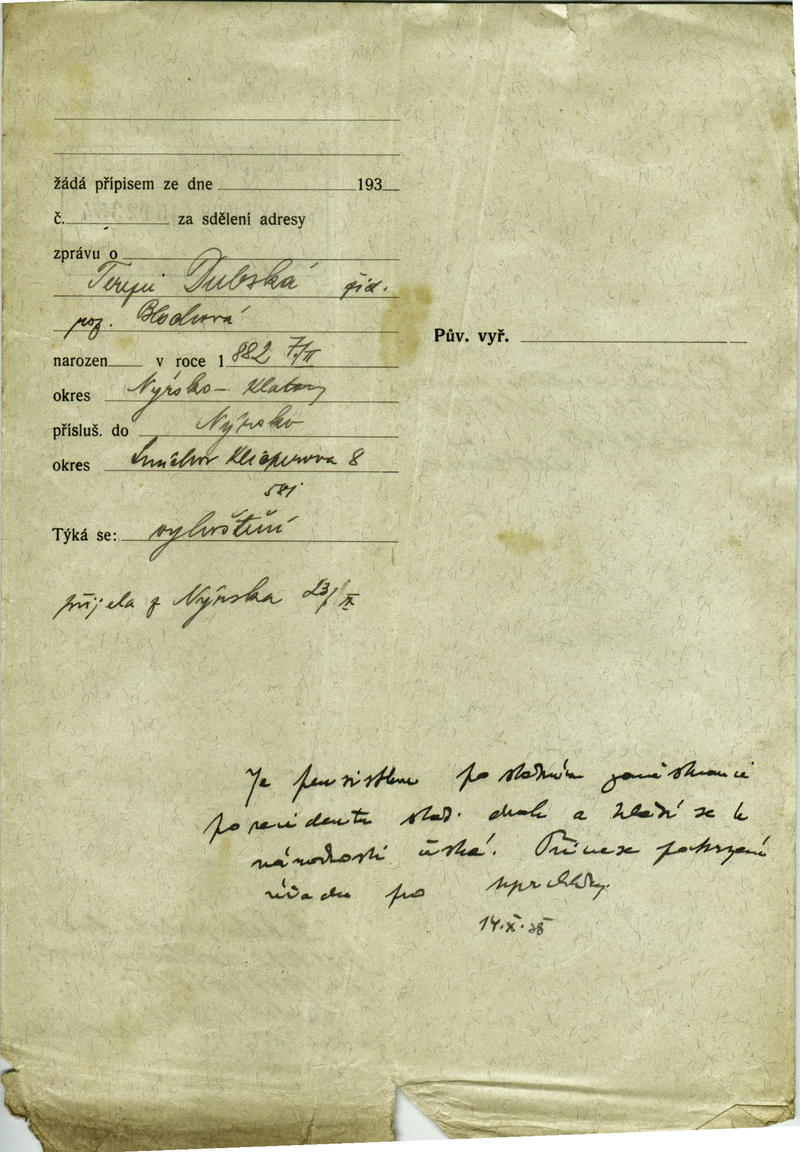 žádá přípisem ze dne 193
č. za sdělení adresy
zprávu o
Terezii Dubská žid.
roz. Blochová
narozen v roce 1882 7/II
okres Nýrsko - Klatovy
přísluš. do Nýrsko
okres Smíchov Klicperova 8
Týká se: vyhoštění
přijela z Nýrska 23/IX
Pův. vyř.
Je pensistkou po statním zaměstnanci
po stat. drah a hlásí se k
národnosti české. Přinese potvrzení
úřadu po
14.X.38